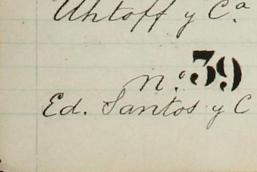 Uhtoff y Cª
N.º 39
Ed. Santos y C